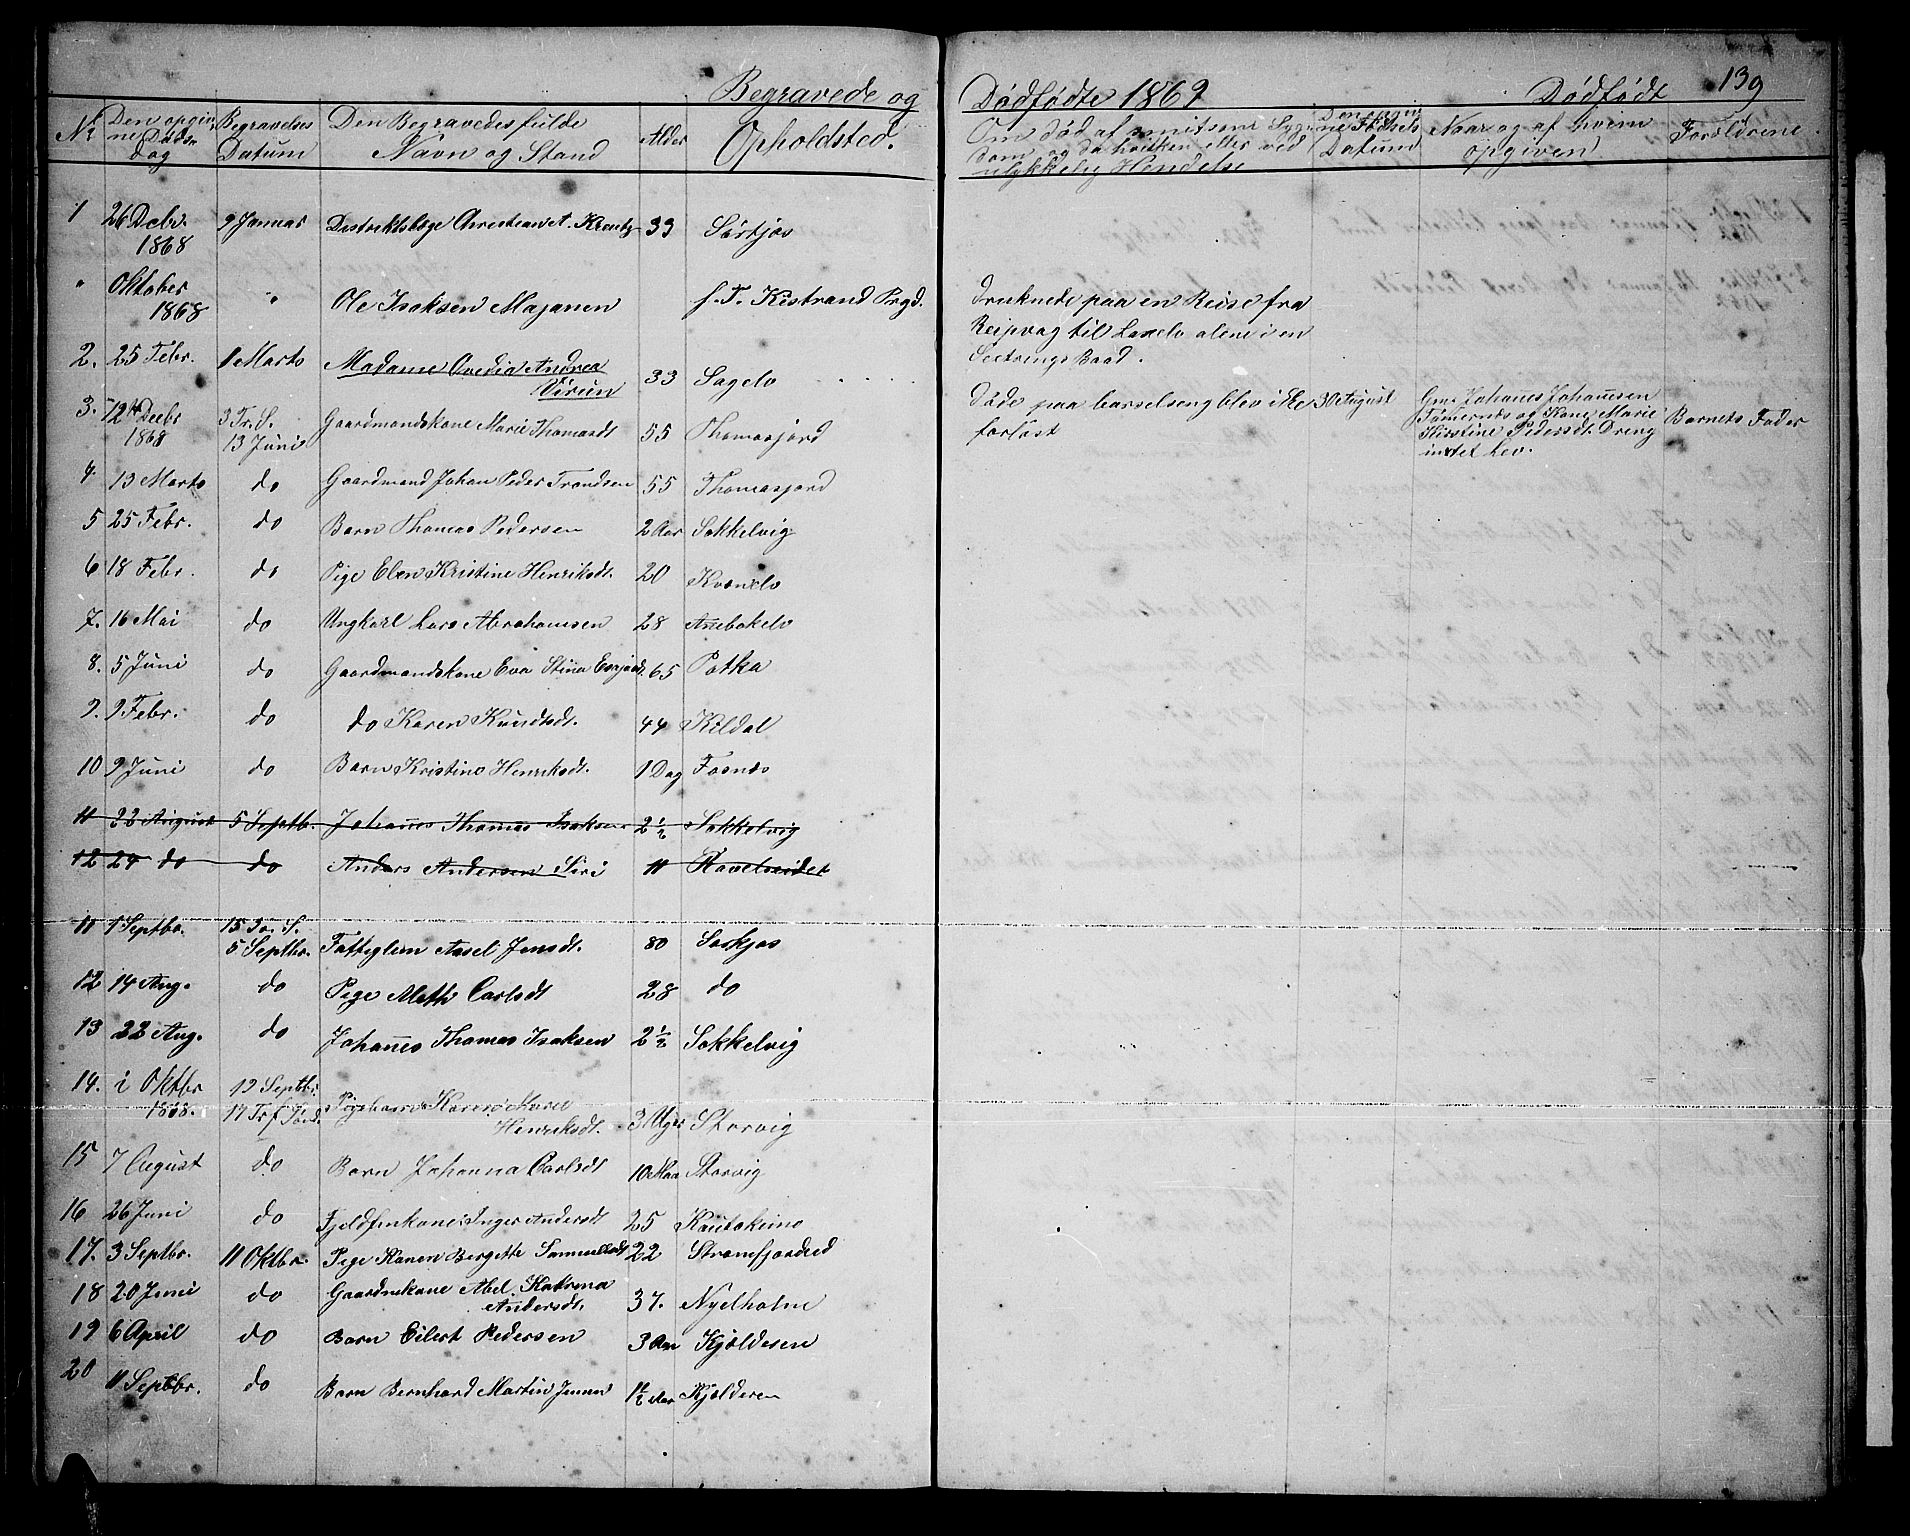 139
Begravede og Dødfødte 1869 Dødfødt
No Den opgivne Døds Dag Begravelses Datum Den Begravedes fulde Navn og Stand Alder Opholdsted. Om død af smitsom Sygdom og da hvilken eller ved ulykkelig Hendelse Den opgivne Fødsels Datum Naar og af hvem opgiven Forældrene
1 26 Decbr. 1868 9 Januar Destriktslæge Christian A. 33 Sørkjos
" Oktober 1868 " Ole Isaksen Majanen f. T. Kistrand Prgd. Druknede paa en Reise fra
Reipvag til Laxelv alene i en
Baad.
2. 25 Febr. 1 Marts Madame Ovedia Andrea
33 Sagelv
3. 12 Decbr 1868 3 Tr. S. 13 Juni Gaardmandskone Marie Thomasdt 55 Thomasjord Døde paa barselseng blev ikke forløst 30 August Gm. Johanes Johanesen
og Kone Marie
Kirstine Pedersdt. Dreng
intet Lev. Barnets Fader
4. 13 Marts do Gaardmand Johan Peder Trondsen 55 Thomasjord
5 25 Febr. do Barn Thomas Pedersen 2 Aar Sokkelvig
6 18 Febr. do Pige Elen Kristine Henriksdt. 20 Kvænelv
7. 16 Mai do Ungkarl Lars Abrahamsen 28
8. 5 Juni do Gaardmandskone Eva Stina 65 Potka
9. 9 Febr. do do Karen Knudsdt. 44 Kildal
10 9 Juni do Barn Kristine Henriksdt. 1 Dag Fosnes
11 22 August 5 Septb. Johanes Thomas Isaksen 2 1/2 Sokkelvig
12 24 do do Anders Andersen Siri 11 Ravelseidet
11 1 Septbr. 15 Tr. S. 5 Septbr. Fattiglem Jensdt. 80 Sørkjos
12 14 Aug. do Pige Carlsdt 28 do
13 22 Aug. do Johanes Thomas Isaksen 2 1/2 Sokkelvig
14. i Oktbr 1868. 12 Septbr. Pigebarn Karen Marie
Henriksdt. 3 Uger Storvig
15 7 August do Barn Johanna Carlsdt 10 Maa Storvig
16 26 Juni do Fjeldfinkone Inger Andersdt 25 Kautokeino
17. 3 Septbr. 11 Oktbr. Pige Karen Bergette Samuelsdt 22 Strømfjordeid
18 20 Juni do Gaardmkone Abel Katrina
Andersdt. 37. Nyelholm
19 6 April do Barn Eilert Pedersen 3 Aar Kjolderen
20 11 Septbr. do Barn Bernhard Martin Jensen 1 1/2 Aar Kjolderen